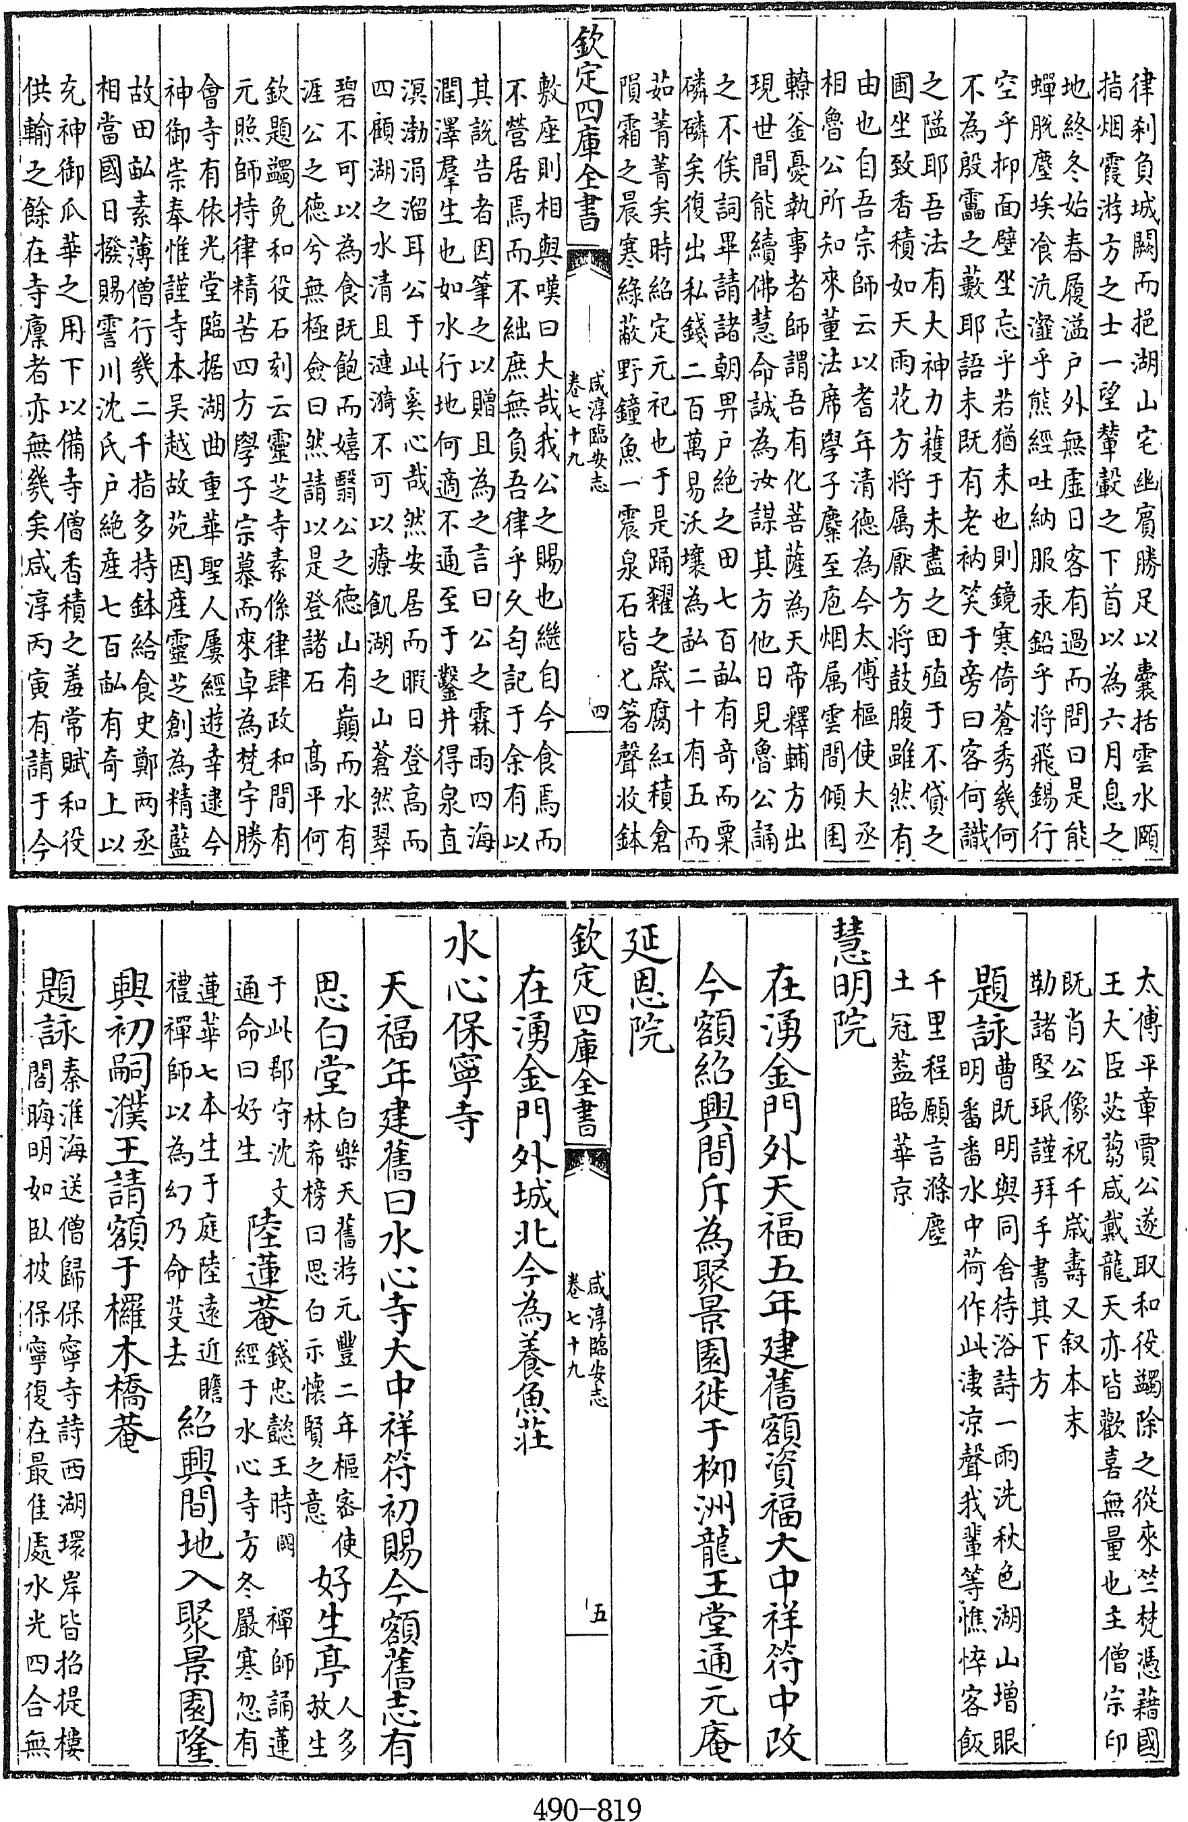 律刹負城闕而挹湖山宅幽賓勝足以囊括雲水頤
指烟霞游方之士一望輦轂之下首以為六月息之
地終冬始春履溢户外無虚日客有過而問曰是能
蟬脫塵埃飡沆瀣乎熊經吐納服汞鉛乎將飛錫行
空乎抑面壁坐忘乎若猶未也則鏡寒倚蒼秀幾何
不為殷靁之藪耶語未既有老衲笑于旁曰客何識
之隘耶吾法有大神力穫于未盡之田殖于不貸之
圃坐致香積如天雨花方將属厭方將鼓腹雖然有
由也自吾宗師云以耆年清德為今太傅樞使大丞
相魯公所知來董法席學子麋至庖烟属雲間傾囷
轑釜憂執事者師謂吾有化菩薩為天帝釋輔方出
現世間能續佛慧命誠為汝謀其方他日見魯公誦
之不俟詞畢請諸朝畀户絶之田七百畝有奇而粟
磷磷矣復出私錢二百萬易沃壤為畝二十有五而
茹菁菁矣時紹定元祀也于是踊糴之歲腐紅積倉
隕霜之晨寒綠蔽野鐘魚一震泉石皆匕箸聲收鉢
欽定四庫全書
咸淳臨安志
卷七十九
四
敷座則相與嘆曰大哉我公之賜也繼自今食焉而
不營居焉而不絀庶無負吾律乎攵匄記于余有以
其說告者因筆之以贈且為之言曰公之霖雨四海
潤澤羣生也如水行地何適不通至于鑿井得泉直
溟渤涓溜耳公于此奚心哉然安居而暇日登高而
四顧湖之水清且漣漪不可以療飢湖之山蒼然翠
碧不可以為食既飽而嬉翳公之德山有巔而水有
涯公之德兮無極僉曰然請以是登諸石　髙平何
欽題蠲免和役石刻云靈芝寺素係律肆政和間有
元照師持律精苦四方學子宗慕而來卓為梵宇勝
會寺有依光堂臨据湖曲重華聖人屢經遊幸逮今
神御崇奉惟謹寺本吳越故苑因産靈芝創為精藍
故田畝素薄僧行幾二千指多持鉢給食史鄭兩丞
相當國日撥賜霅川沈氏户絶産七百畝有奇上以
充神御瓜華之用下以備寺僧香積之羞常賦和役
供輸之餘在寺廪者亦無幾矣咸淳丙寅有請于今
太傅平章賈公遂取和役蠲除之從來竺梵憑藉國
王大臣苾蒭咸戴龍天亦皆歡喜無量也主僧宗印
既肖公像祝千歲壽又叙本末
勒諸堅珉謹拜手書其下方
題詠曹既明與同舍待浴詩一雨洗秋色湖山增眼
明畨畨水中荷作此凄凉聲我輩等憔悴客飯
千里程願言滌塵
土冠蓋臨華京
慧明院
在湧金門外天福五年建舊額資福大中祥符中改
今額紹興間斥為聚景園徙于柳洲龍王堂通元庵
延恩院
欽定四庫全書
咸淳臨安志
卷七十九
五
在湧金門外城北今為養魚莊
水心保寧寺
天福年建舊曰水心寺大中祥符初賜今額舊志有
思白堂白樂天舊游元豐二年樞密使
林希榜曰思白示懷賢之意　好生亭人多
放生
于此郡守沈文
通命曰好生　陸蓮菴錢忠懿王時闕　禪師誦蓮
經于水心寺方冬嚴寒忽有
蓮華七本生于庭陸遠近瞻
禮禪師以為幻乃命芟去　紹興間地入聚景園隆
興初嗣濮王請額于欏木橋菴
題詠秦淮海送僧歸保寧寺詩西湖環岸皆招提樓
閣晦明如臥披保寧復在最佳處水光四合無
490-819